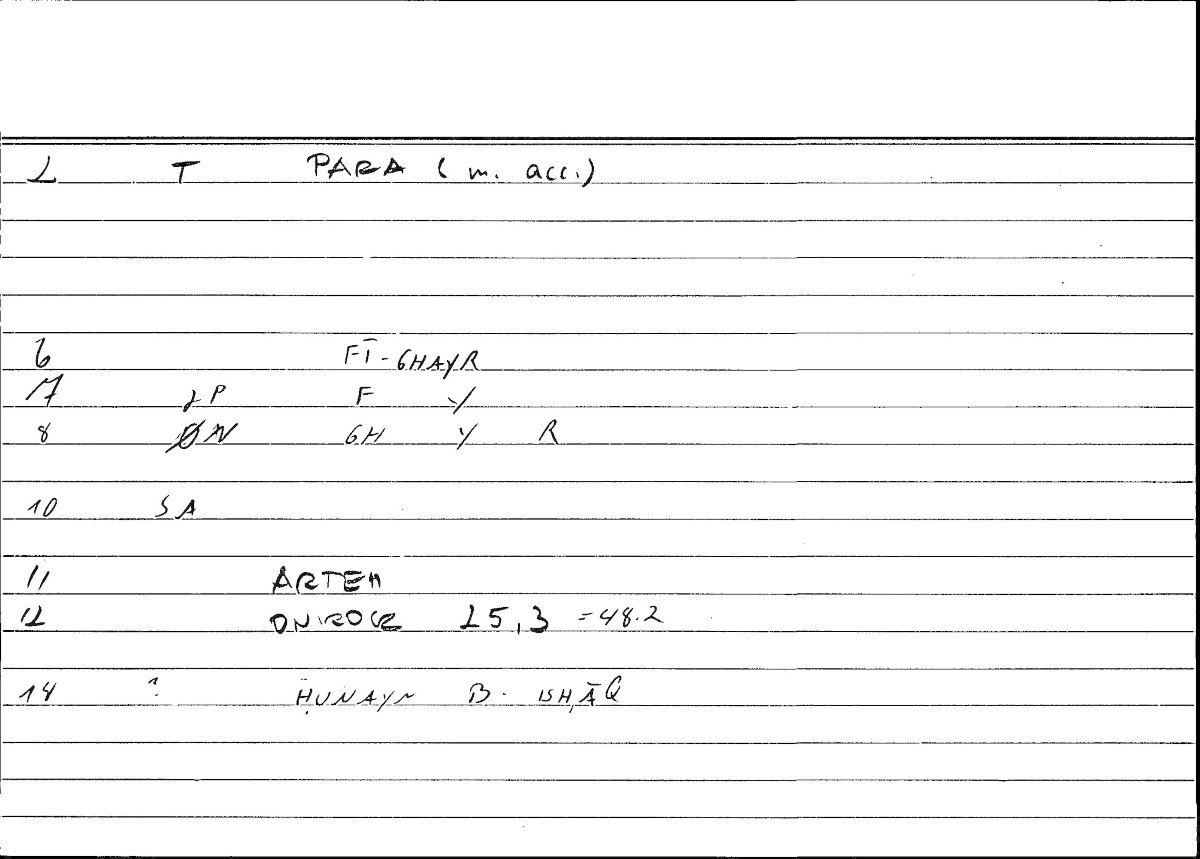 L T PARA (m. acc.)
6 FĪ-GHAYR
7 LP F Y
8 ØN GH Y R
10 SA
11 ARTEM
12 ONIROCR 25,3 =48.2
14 ? ḤUNAYN B. ISḤĀQ